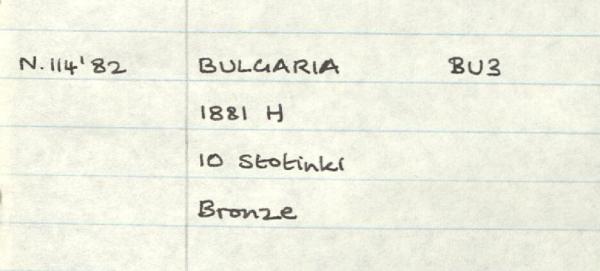 N.114'82 BULGARIA BU3
1881 H
10 Stotinki
Bronze